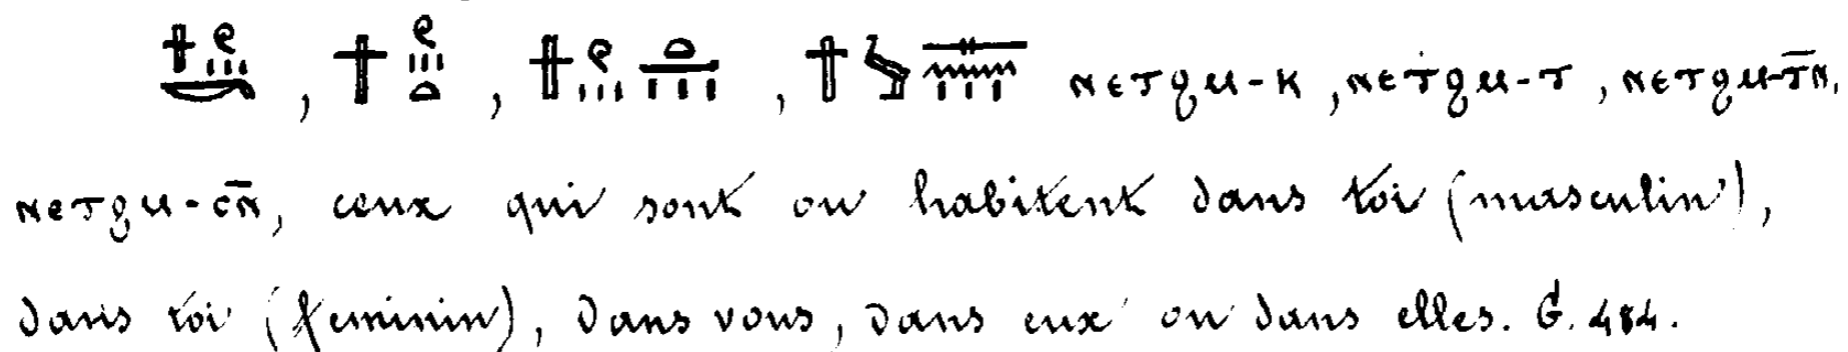 𓏶𓏲𓏥𓎡, 𓏶𓏲𓏥𓏏, 𓏶𓏲𓏥𓏏𓈖𓏥, 𓏶𓊃𓈖𓏥 ⲛⲉⲧϩⲙ-ⲕ, ⲛⲉⲧϩⲙ-ⲧ, ⲛⲉⲧϩⲙ-ⲧ̅ⲛ̅,
ⲛⲉⲧϩⲙ-ⲥ̅ⲛ̅, ceux qui sont ou habitent dans toi (masculin),
dans toi (feminin), dans vous, dans eux ou dans elles. G. 484.